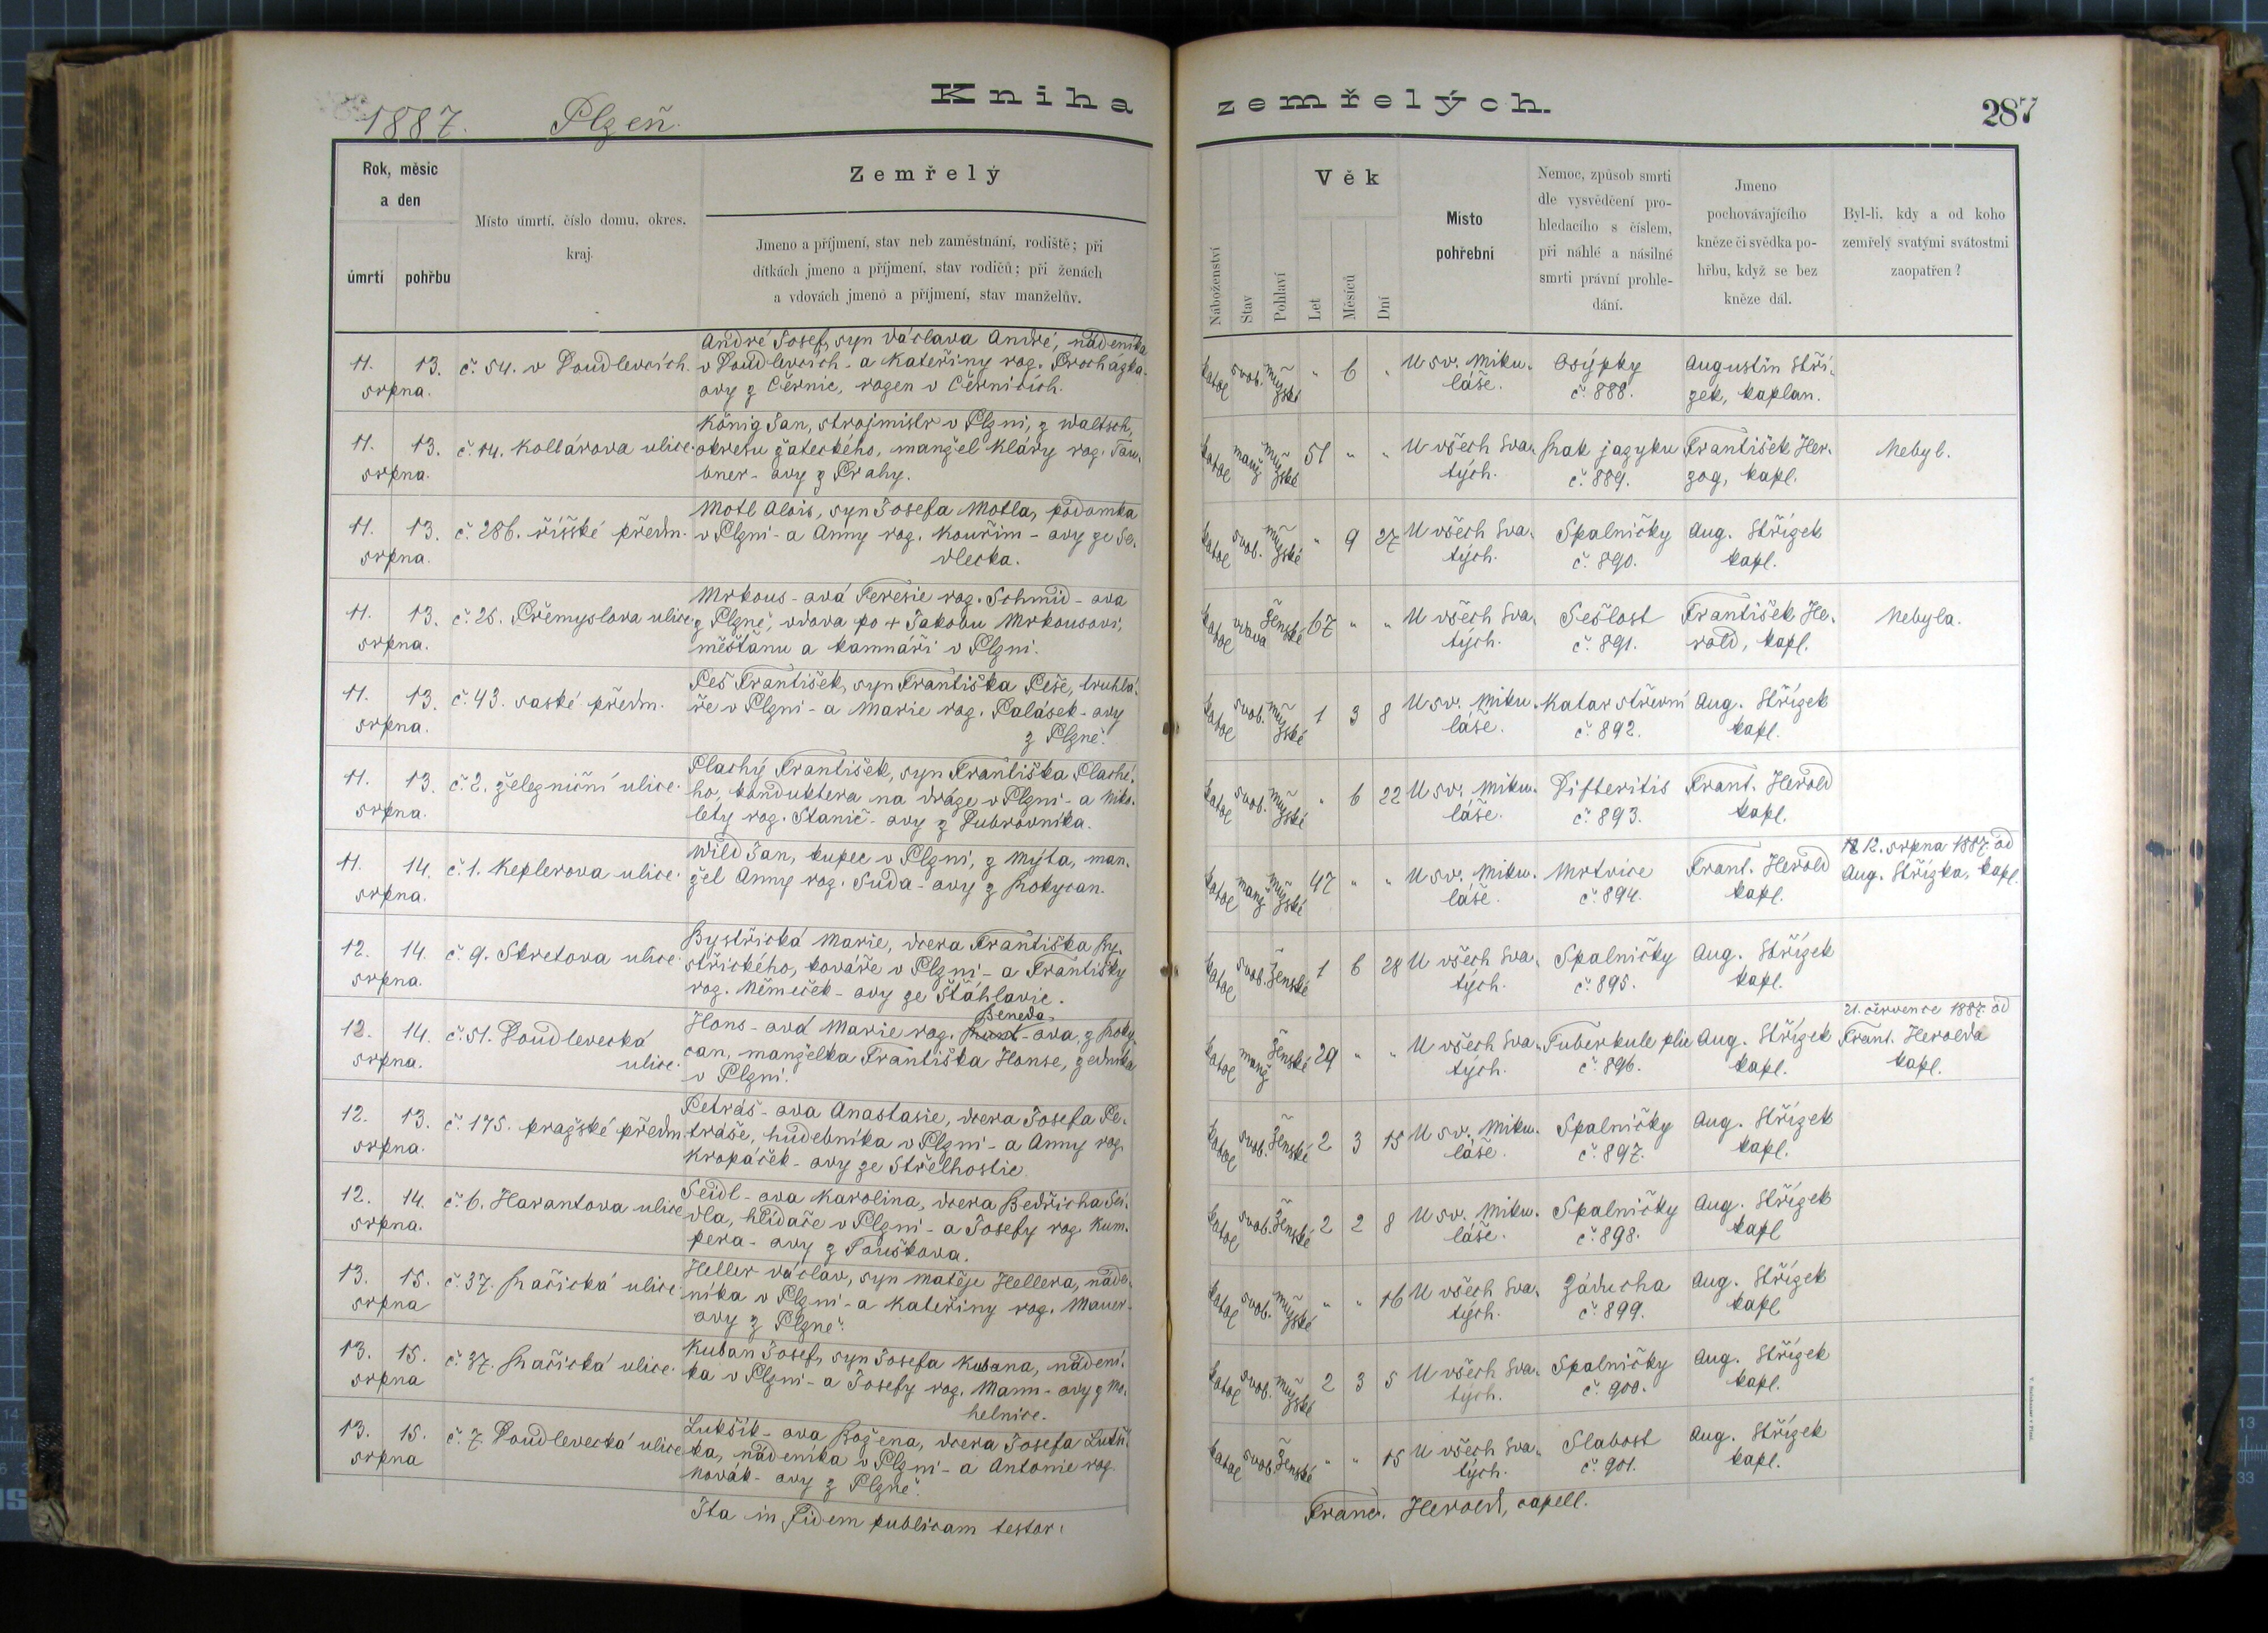 Kniha zemřelých. 287
1887. Plzeň.
Rok, měsíc
a den
úmrtí pohřbu
Místo úmrtí, číslo domu, okres,
kraj.
Zemřelý
Jmeno a příjmení, stav neb zaměstnání, rodiště; při
dítkách jmeno a příjmení, stav rodičů; při ženách
a vdovách jmeno a příjmení, stav manželův.
Náboženství
Stav
Pohlaví
Věk
Let
Měsíců
Dní
Místo
pohřební
Nemoc, způsob smrti
dle vysvědčení pro-
hledacího s číslem,
při náhlé a násilné
smrti právní prohle-
dání.
Jmeno
pochovávajícího
kněze či svědka po-
hřbu, když se bez
kněze dál.
Byl-li, kdy a od koho
zemřelý svatými svátostmi
zaopatřen?
André Josef, syn Václava André, nádeníka
11. 13. č. 54. v Doudlevcích. v Doudlevcích - a Kateřiny roz. Procházka-
srpna. ovy z Černic, rozen v Černicích.
katol svob. mužské " 6 " U sv. Miku- Osýpky Augustin Stří-
láše. č. 888. zek, kaplan.
König Jan, strojmistr v Plzni, z Waltsch,
11. 13. č. 14. Kollárova ulice. okresu žateckého, manžel Kláry roz. Tau-
srpna. bner - ovy z Prahy.
katol manž mužské 51 " " U všech Sva- Rak jazyku František Her- Nebyl.
tých. č. 889. zog, kapl.
Motl Alois, syn Josefa Motla, podomka
11. 13. č. 286. říšské předm. v Plzni - a Anny roz. Kouřim - ovy ze Se-
srpna. dlecka.
katol svob. mužské " 9 27 U všech Sva- Spalničky Aug. Střízek
tých. č. 890. kapl.
Mrkous - ová Teresie roz. Schmid - ova
11. 13. č. 25. Přemyslova ulice. z Plzně, vdova po + Jakobu Mrkousovi,
srpna. měšťanu a kamnáři v Plzni.
katol vdova ženské 67 " " U všech Sva- Sešlost František He- Nebyla.
tých. č. 891. rold, kapl.
Peš František, syn Františka Peše, truhlá-
11. 13. č. 43. saské předm. ře v Plzni - a Marie roz. Palásek - ovy
srpna. z Plzně.
katol svob. mužské 1 3 8 U sv. Miku- Katar střevní Aug. Střízek
láše. č. 892. kapl.
Plachý František, syn Františka Plaché-
11. 13. č. 2. železniční ulice. ho, konduktera na dráze v Plzni - a Niko-
srpna. lety roz. Stanič - ovy z Dubrovníka.
katol svob. mužské " 6 22 U sv. Miku- Difteritis Frant. Herold
láše. č. 893. kapl.
Wild Jan, kupec v Plzni, z Mýta, man-
11. 14. č. 1. Keplerova ulice. žel Anny roz. Suda - ovy z Rokycan.
srpna.
12. srpna 1887. od
katol manž mužské 47 " " U sv. Miku- Mrtvice Frant. Herold Aug. Střízka, kapl.
láše. č. 894. kapl.
Bystřická Marie, dcera Františka By-
12. 14. č. 9. Skretova ulice. střického, kováře v Plzni - a Františky
srpna. roz. Němeček - ovy ze Štáhlavic.
katol svob. ženské 1 6 28 U všech Sva- Spalničky Aug. Střízek
tých. č. 895. kapl.
Beneda
Hons - ová Marie roz. - ova, z Roky-
12. 14. č. 51. Doudlevecká can, manželka Františka Honse, zedníka
srpna. ulice. v Plzni.
21. července 1887. od
katol manž ženské 29 " " U všech Sva- Tuberkule plic Aug. Střízek Frant. Herolda
tých. č. 896. kapl. kapl.
Petráš - ova Anastasie, dcera Josefa Pe-
12. 13. č. 175. pražské předm. tráše, hudebníka v Plzni - a Anny roz.
srpna. Kropáček - ovy ze Střelhostic.
katol svob. ženské 2 3 15 U sv. Miku- Spalničky Aug. Střízek
láše. č. 897. kapl.
Seidl - ova Karolina, dcera Bedřicha Sei-
12. 14. č. 6. Harantova ulice dla, hlídače v Plzni - a Josefy roz. Kum-
srpna. pera - ovy z Touškova.
katol svob. ženské 2 2 8 U sv. Miku- Spalničky Aug. Střízek
láše. č. 898. kapl
Heller Václav, syn Matěje Hellera, náde-
13. 15. č. 37. Račická ulice. níka v Plzni - a Kateřiny roz. Mauer-
srpna ovy z Plzně.
katol svob. mužské " " 16 U všech Sva- Záducha Aug. Střízek
tých. č. 899. kapl
Kuban Josef, syn Josefa Kubana, nádení-
13. 15. č. 37. Račická ulice. ka v Plzni - a Josefy roz. Mann - ovy z Mo-
srpna helnice.
katol svob. mužské 2 3 5 U všech Sva- Spalničky Aug. Střízek
tých. č. 900. kapl.
Lukšík - ova Božena, dcera Josefa Lukší-
13. 15. č. 7. Doudlevecká ulice ka, nádeníka v Plzni - a Antonie roz.
srpna Novák - ovy z Plzně.
katol svob. ženské " " 15 U všech Sva- Slabost Aug. Střízek
tých. č. 901. kapl.
Ita in fidem publicam testor: Franc. Herold, capell.